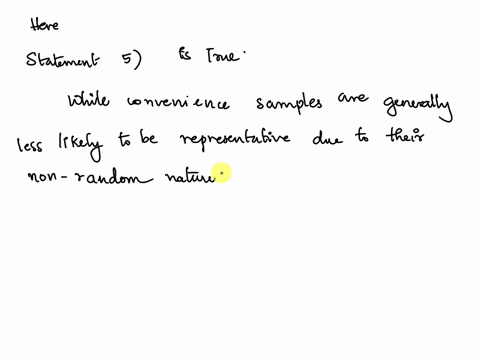 Here
Statement 5) is True.
While convenience samples are generally
less likely to be representative due to their
non-random nature.